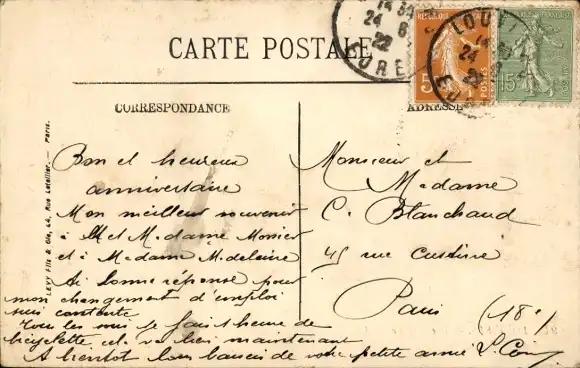 CARTE POSTALE
CORRESPONDANCE
ADRESSE
Bon et heureux
anniversaire
Mon meilleur souvenir
à M et Madame Monier
et à Madame Madelaine
Ai bonne réponse pour
mon changement d'emploi
suis contente
Tous les soirs je fais 1 heure de
bicyclette cela va bien maintenant
A bientôt bons baisers de votre petite amie
Monsieur et
Madame
C. Blanchaud
45 rue Custine
Paris (18e)
LEVY Fils & Cie, 44, Rue Letellier. — Paris.
LOUVI
14
24
EURE
14 30
24 8
22
5
15
POSTES